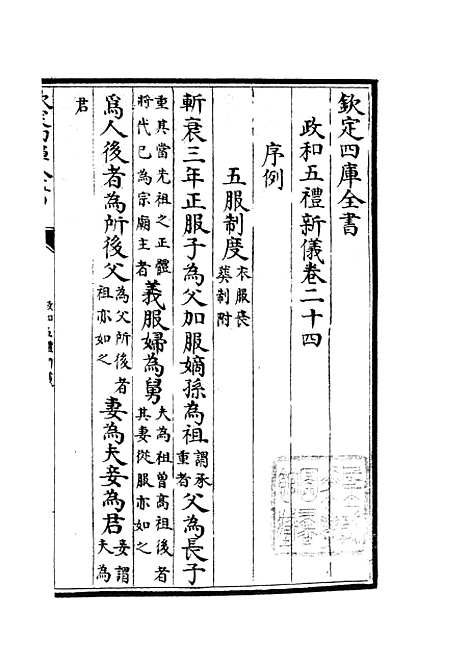 欽定四庫全書
政和五禮新儀卷二十四
序例
五服制度衣服喪葬制附
斬衰三年正服子為父加服嫡孫為祖謂承重者父為長子
重其當先祖之正體將代已為宗廟主者義服婦為舅夫為祖曾高祖後者其妻從服亦如之
為人後者為所後父為父所後者祖亦如之妻為夫妾為君妾謂夫為
君